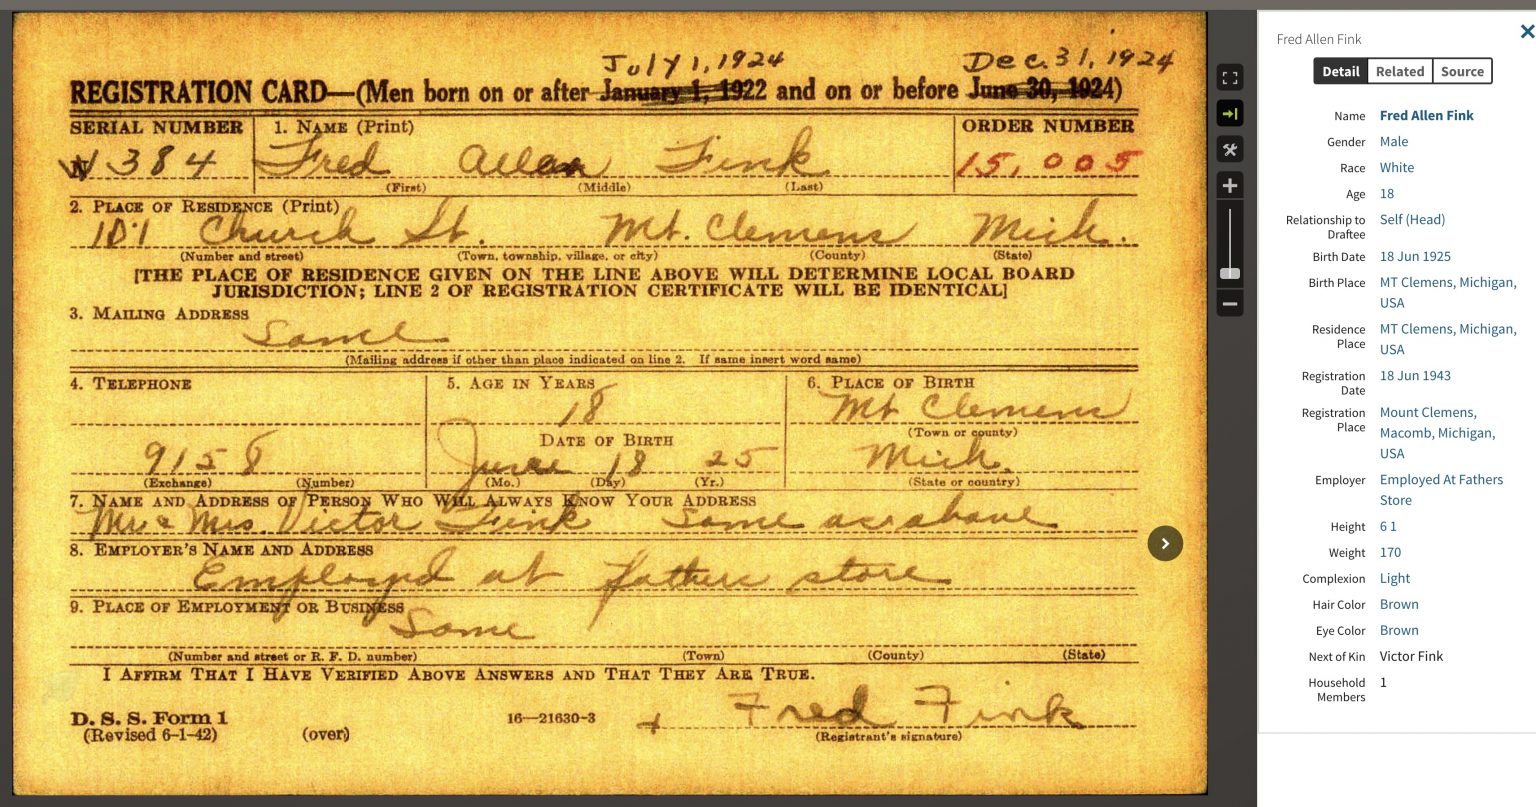 July 1, 1924 Dec. 31, 1924
REGISTRATION CARD—(Men born on or after January 1, 1922 and on or before June 30, 1924)
SERIAL NUMBER 1. NAME (Print) ORDER NUMBER
N 384 Fred Allan Fink 15,005
(First) (Middle) (Last)
2. PLACE OF RESIDENCE (Print)
101 Church St. Mt. Clemens Mich.
(Number and street) (Town, township, village, or city) (County) (State)
[THE PLACE OF RESIDENCE GIVEN ON THE LINE ABOVE WILL DETERMINE LOCAL BOARD
JURISDICTION; LINE 2 OF REGISTRATION CERTIFICATE WILL BE IDENTICAL]
3. MAILING ADDRESS
Same
(Mailing address if other than place indicated on line 2. If same insert word same)
4. TELEPHONE 5. AGE IN YEARS 6. PLACE OF BIRTH
18 Mt Clemens
DATE OF BIRTH (Town or county)
9158 June 18 25 Mich.
(Exchange) (Number) (Mo.) (Day) (Yr.) (State or country)
7. NAME AND ADDRESS OF PERSON WHO WILL ALWAYS KNOW YOUR ADDRESS
Mr & Mrs. Victor Fink same as above
8. EMPLOYER'S NAME AND ADDRESS
Employd at fathers store
9. PLACE OF EMPLOYMENT OR BUSINESS
Same
(Number and street or R. F. D. number) (Town) (County) (State)
I AFFIRM THAT I HAVE VERIFIED ABOVE ANSWERS AND THAT THEY ARE TRUE.
D. S. S. Form 1 16—21630-3 Fred Fink
(Revised 6-1-42) (over) (Registrant's signature)
Fred Allen Fink
Detail Related Source
Name Fred Allen Fink
Gender Male
Race White
Age 18
Relationship to Self (Head)
Draftee
Birth Date 18 Jun 1925
Birth Place MT Clemens, Michigan,
USA
Residence MT Clemens, Michigan,
Place USA
Registration 18 Jun 1943
Date
Registration Mount Clemens,
Place Macomb, Michigan,
USA
Employer Employed At Fathers
Store
Height 6 1
Weight 170
Complexion Light
Hair Color Brown
Eye Color Brown
Next of Kin Victor Fink
Household 1
Members